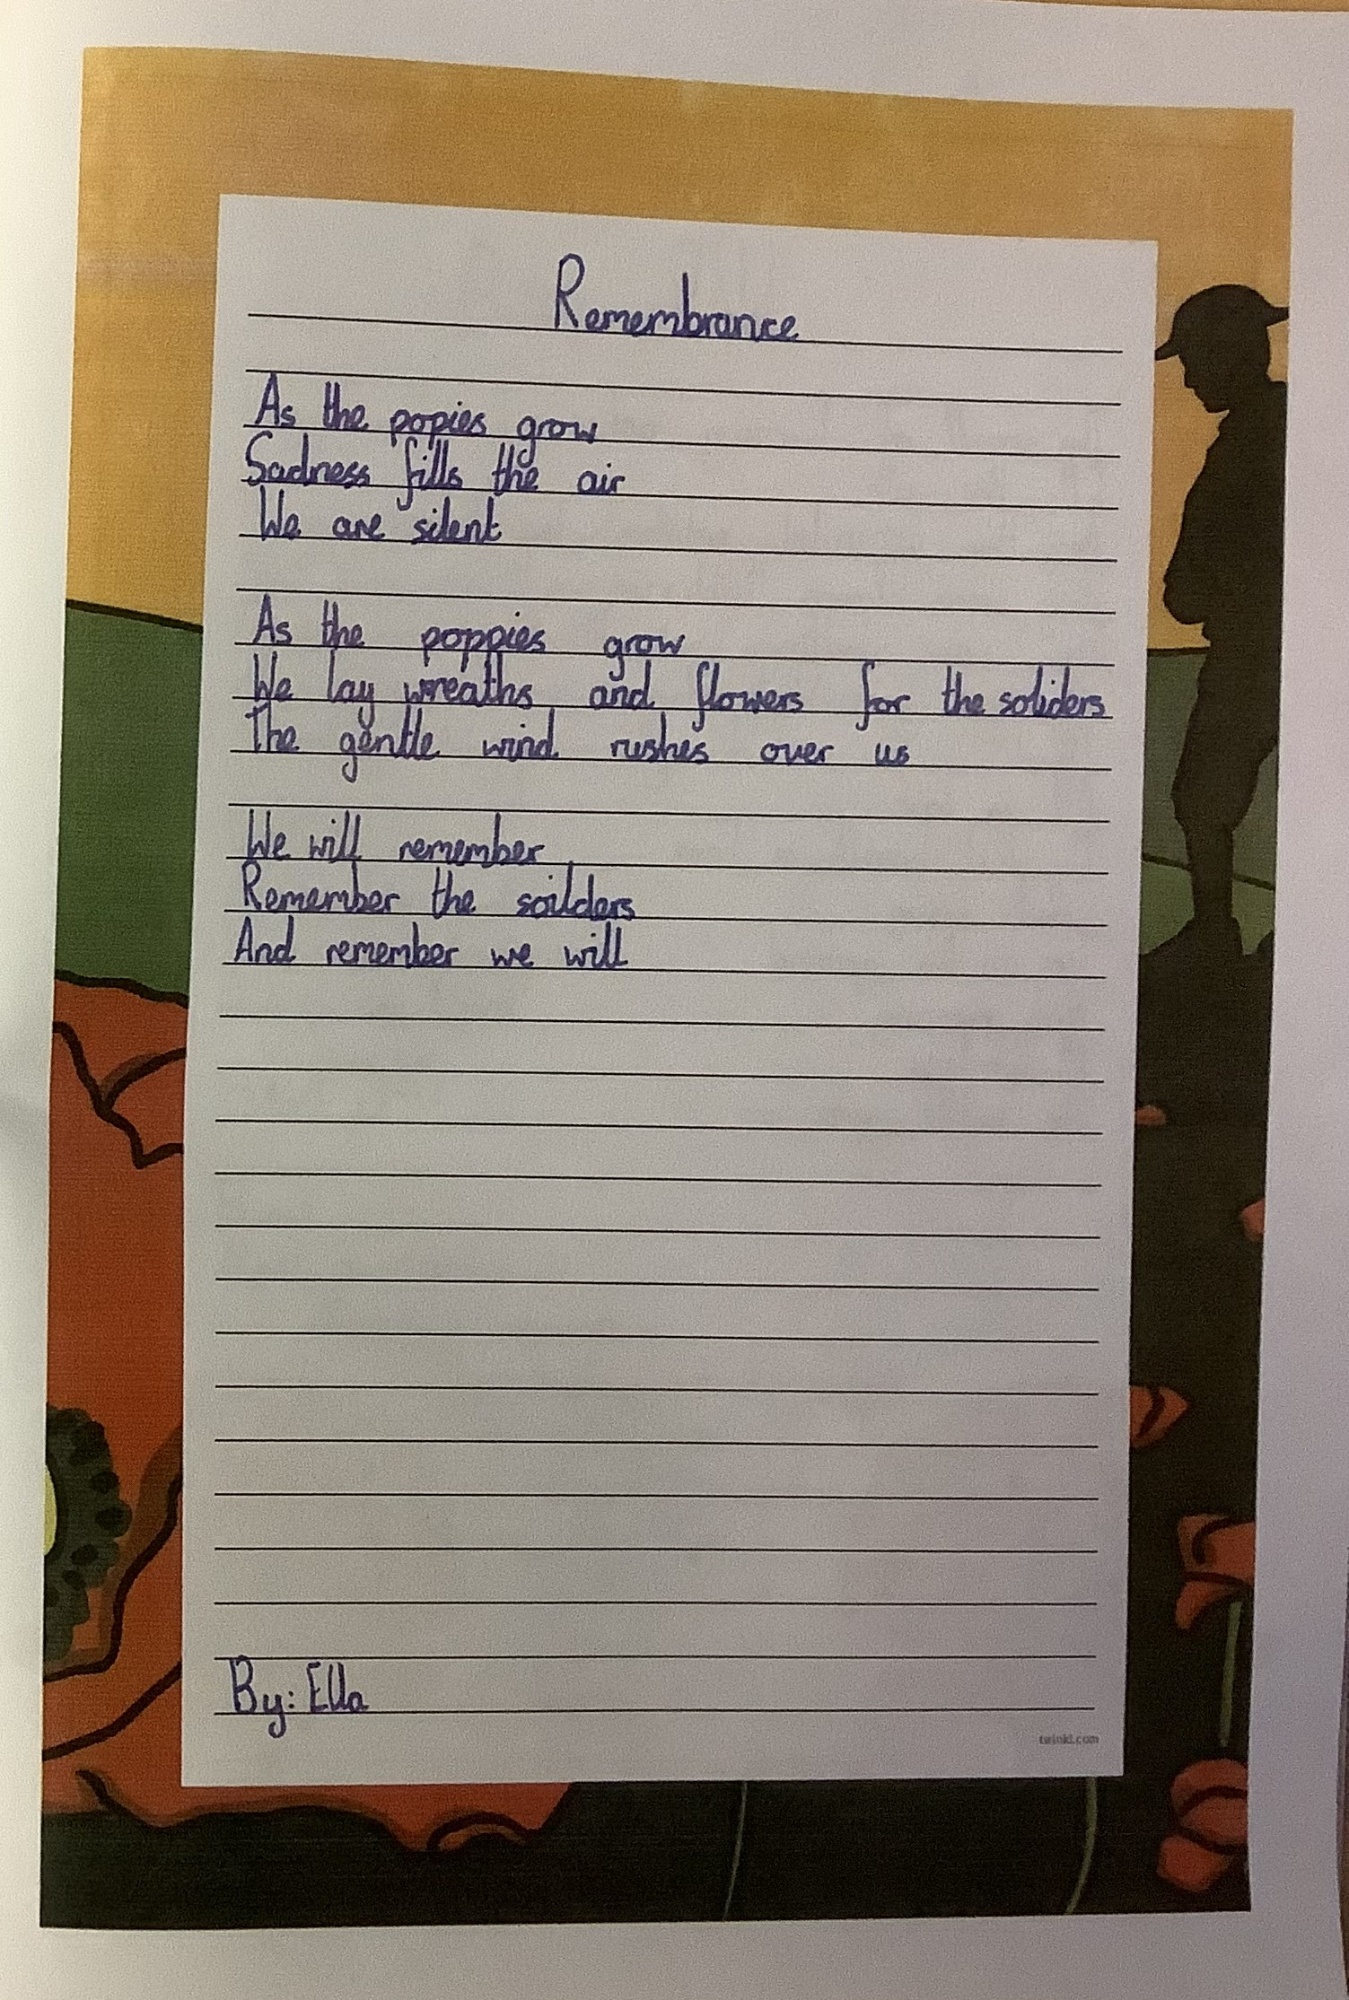 Remembrance
As the popies grow
Sadness fills the air
We are silent
As the poppies grow
We lay wreaths and flowers for the soliders
The gentle wind rushes over us
We will remember
Remember the soilders
And remember we will
By: Ella
twinkl.com